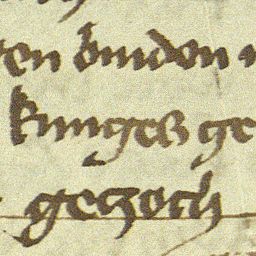 en binden
kunges ge
gezoch